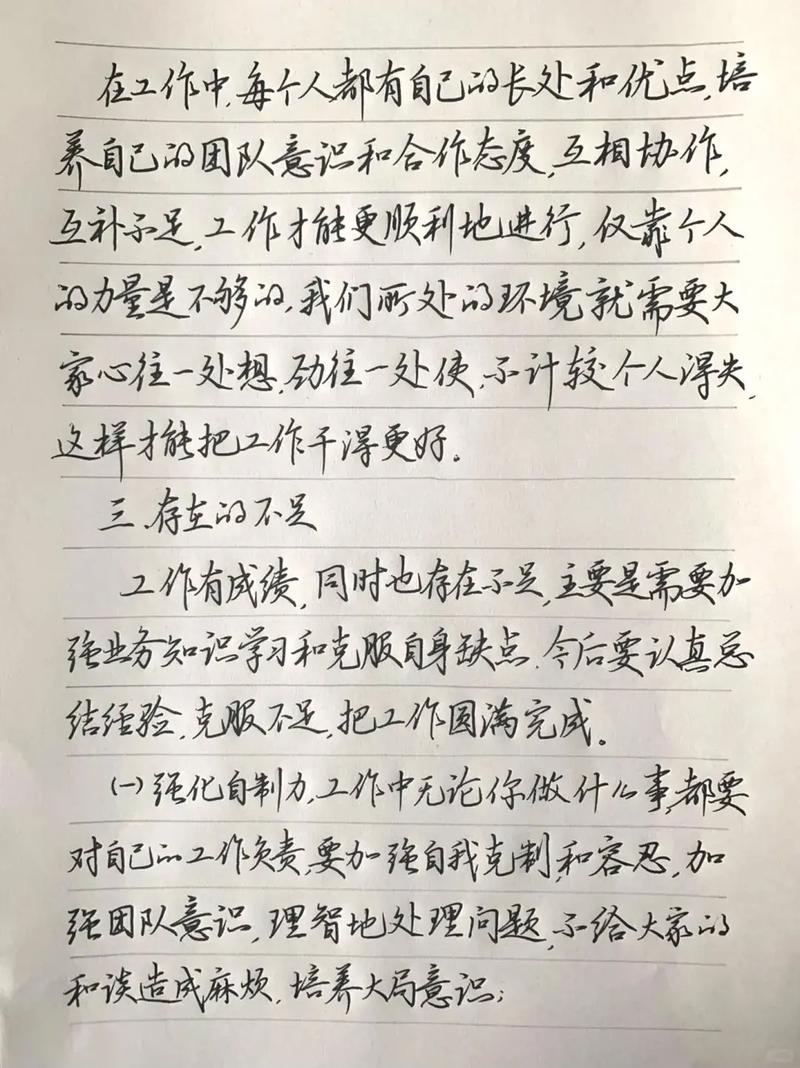 在工作中,每个人都有自己的长处和优点,培
养自己的团队意识和合作态度,互相协作,
互补不足,工作才能更顺利地进行,仅靠个人
的力量是不够的,我们所处的环境就需要大
家心往一处想,劲往一处使,不计较个人得失,
这样才能把工作干得更好。
三、存在的不足
工作有成绩,同时也存在不足,主要是需要加
强业务知识学习和克服自身缺点,今后要认真总
结经验,克服不足,把工作圆满完成。
(一)强化自制力,工作中无论你做什么事,都要
对自己的工作负责,要加强自我克制和容忍,加
强团队意识,理智地处理问题,不给大家的
和谈造成麻烦,培养大局意识;